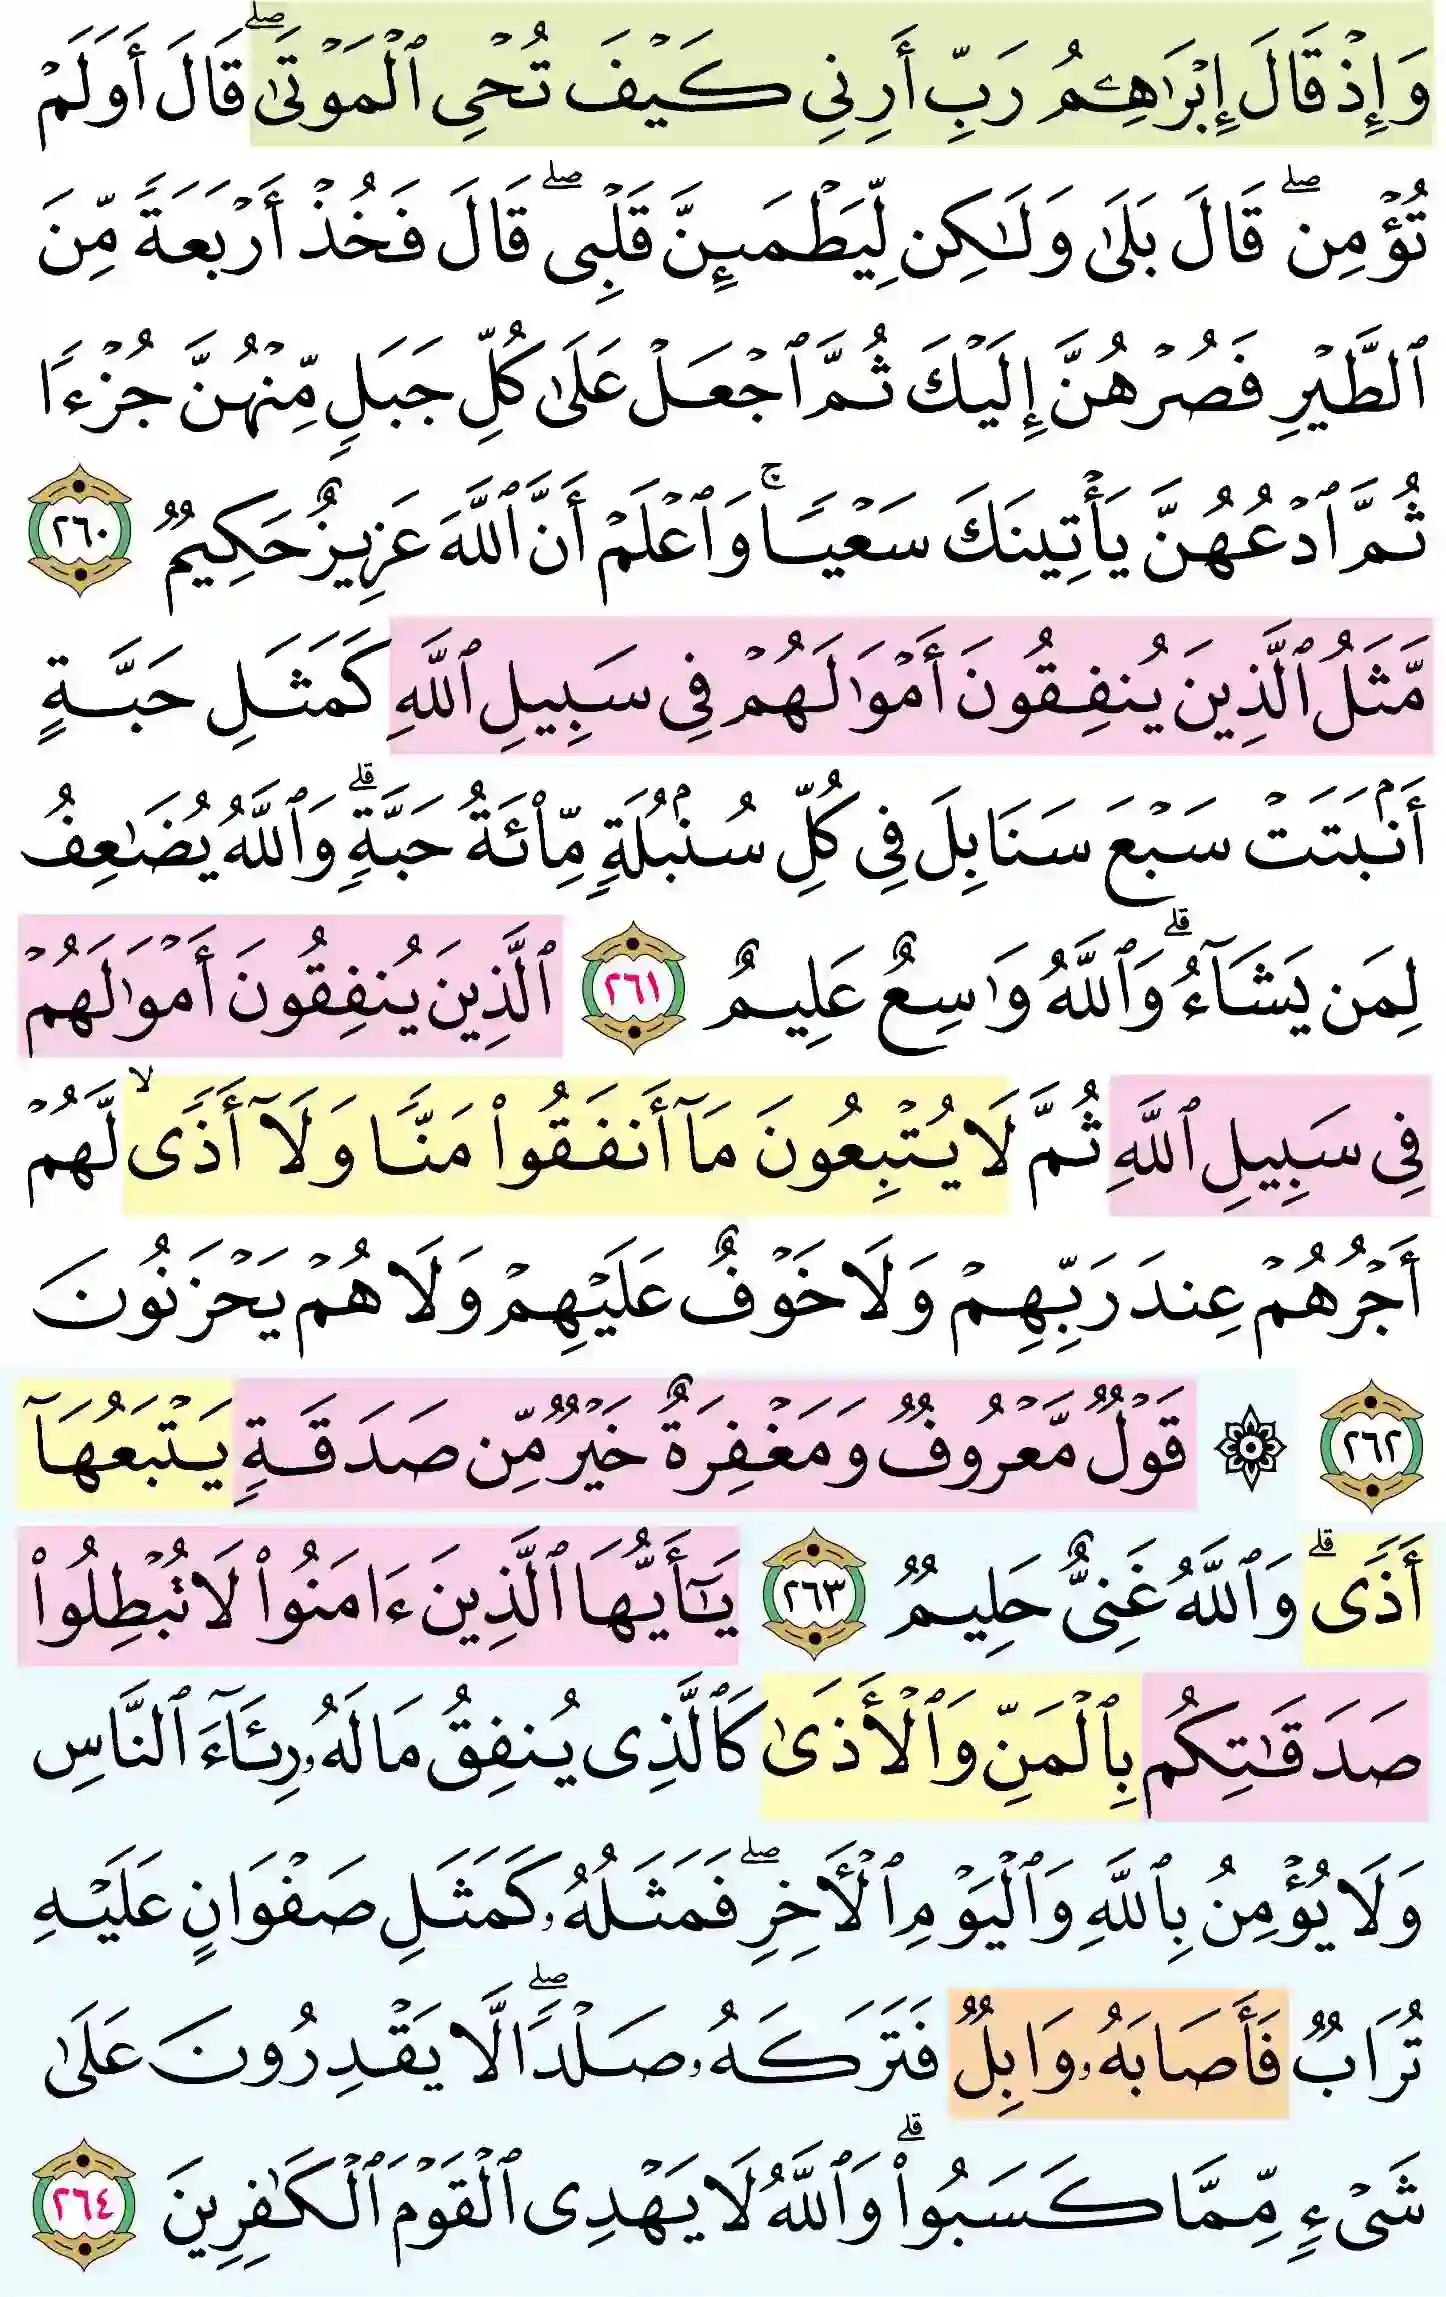 وَإِذْ قَالَ إِبْرَٰهِـۧمُ رَبِّ أَرِنِى كَيْفَ تُحْىِ ٱلْمَوْتَىٰ ۖ قَالَ أَوَلَمْ
تُؤْمِن ۖ قَالَ بَلَىٰ وَلَـٰكِن لِّيَطْمَئِنَّ قَلْبِى ۖ قَالَ فَخُذْ أَرْبَعَةً مِّنَ
ٱلطَّيْرِ فَصُرْهُنَّ إِلَيْكَ ثُمَّ ٱجْعَلْ عَلَىٰ كُلِّ جَبَلٍ مِّنْهُنَّ جُزْءًا
ثُمَّ ٱدْعُهُنَّ يَأْتِينَكَ سَعْيًا ۚ وَٱعْلَمْ أَنَّ ٱللَّهَ عَزِيزٌ حَكِيمٌ ٢٦٠
مَّثَلُ ٱلَّذِينَ يُنفِقُونَ أَمْوَٰلَهُمْ فِى سَبِيلِ ٱللَّهِ كَمَثَلِ حَبَّةٍ
أَنۢبَتَتْ سَبْعَ سَنَابِلَ فِى كُلِّ سُنۢبُلَةٍ مِّا۟ئَةُ حَبَّةٍ ۗ وَٱللَّهُ يُضَـٰعِفُ
لِمَن يَشَآءُ ۗ وَٱللَّهُ وَٰسِعٌ عَلِيمٌ ٢٦١ ٱلَّذِينَ يُنفِقُونَ أَمْوَٰلَهُمْ
فِى سَبِيلِ ٱللَّهِ ثُمَّ لَا يُتْبِعُونَ مَآ أَنفَقُوا۟ مَنًّا وَلَآ أَذًى ۙ لَّهُمْ
أَجْرُهُمْ عِندَ رَبِّهِمْ وَلَا خَوْفٌ عَلَيْهِمْ وَلَا هُمْ يَحْزَنُونَ
٢٦٢ ۞ قَوْلٌ مَّعْرُوفٌ وَمَغْفِرَةٌ خَيْرٌ مِّن صَدَقَةٍ يَتْبَعُهَآ
أَذًى ۗ وَٱللَّهُ غَنِىٌّ حَلِيمٌ ٢٦٣ يَـٰٓأَيُّهَا ٱلَّذِينَ ءَامَنُوا۟ لَا تُبْطِلُوا۟
صَدَقَـٰتِكُم بِٱلْمَنِّ وَٱلْأَذَىٰ كَٱلَّذِى يُنفِقُ مَالَهُۥ رِئَآءَ ٱلنَّاسِ
وَلَا يُؤْمِنُ بِٱللَّهِ وَٱلْيَوْمِ ٱلْـَٔاخِرِ ۖ فَمَثَلُهُۥ كَمَثَلِ صَفْوَانٍ عَلَيْهِ
تُرَابٌ فَأَصَابَهُۥ وَابِلٌ فَتَرَكَهُۥ صَلْدًا ۖ لَّا يَقْدِرُونَ عَلَىٰ
شَىْءٍ مِّمَّا كَسَبُوا۟ ۗ وَٱللَّهُ لَا يَهْدِى ٱلْقَوْمَ ٱلْكَـٰفِرِينَ ٢٦٤